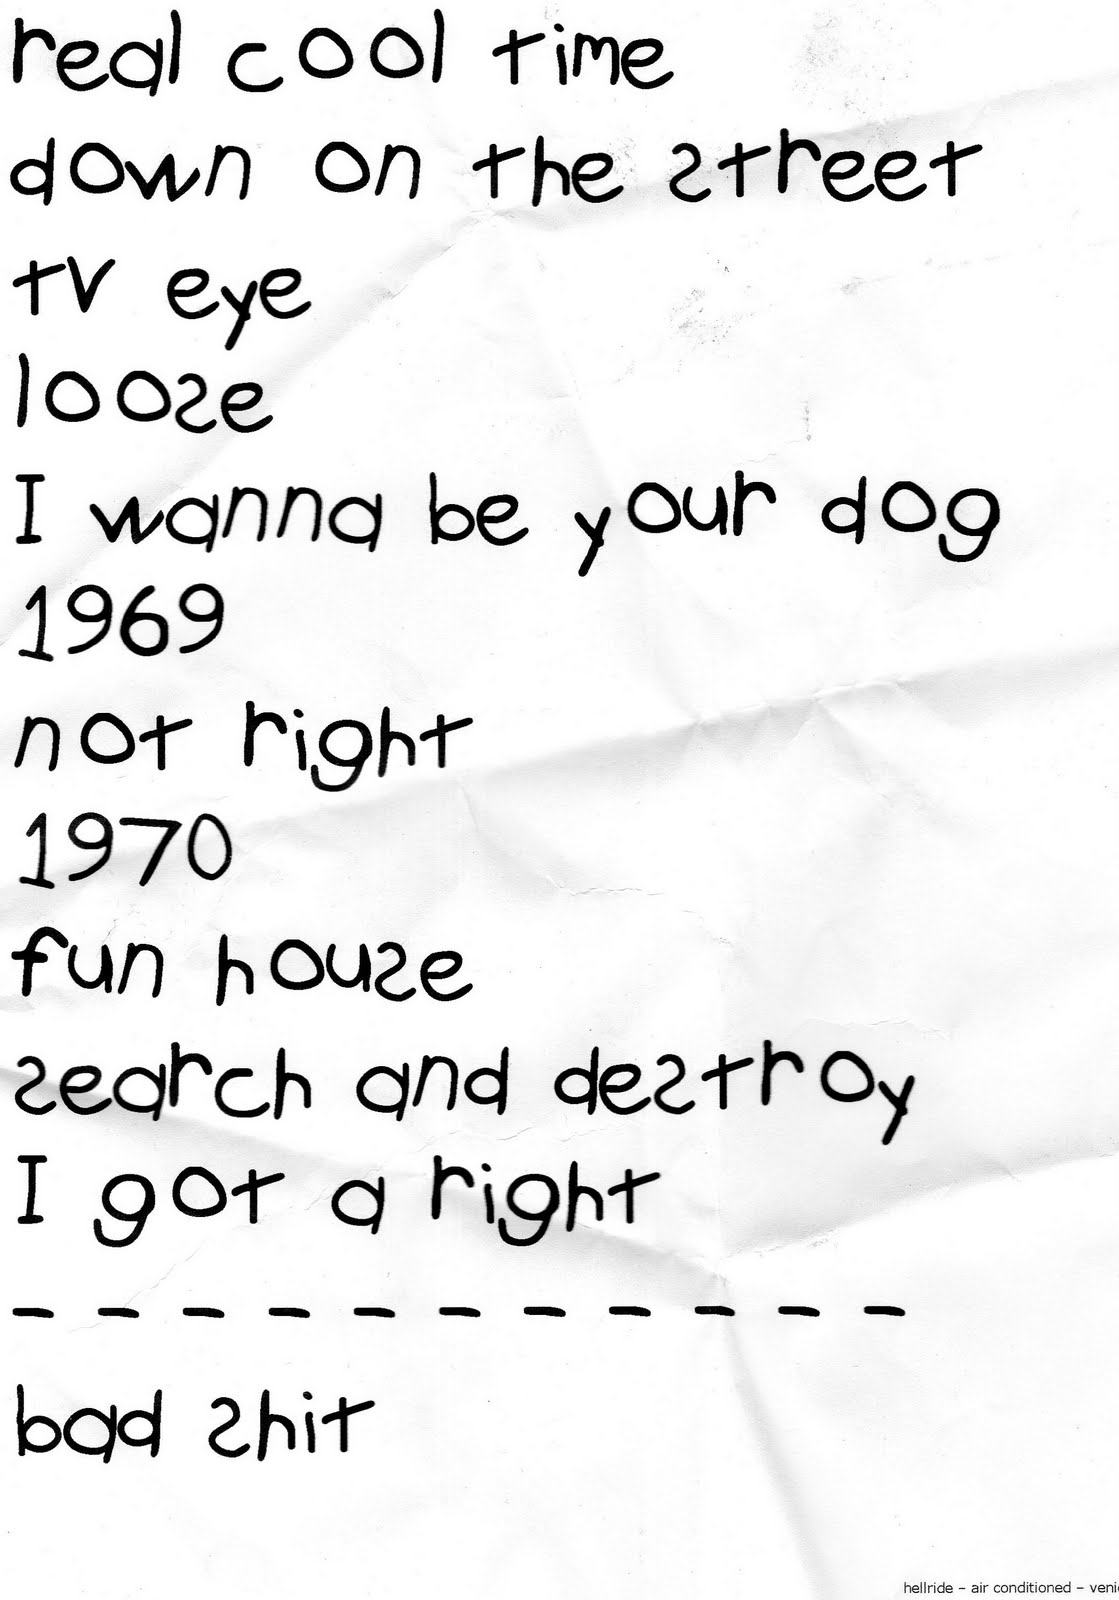 real cool time
down on the street
tv eye
loose
I wanna be your dog
1969
not right
1970
fun house
search and destroy
I got a right
- - - - - - - - - - -
bad shit
hellride – air conditioned –